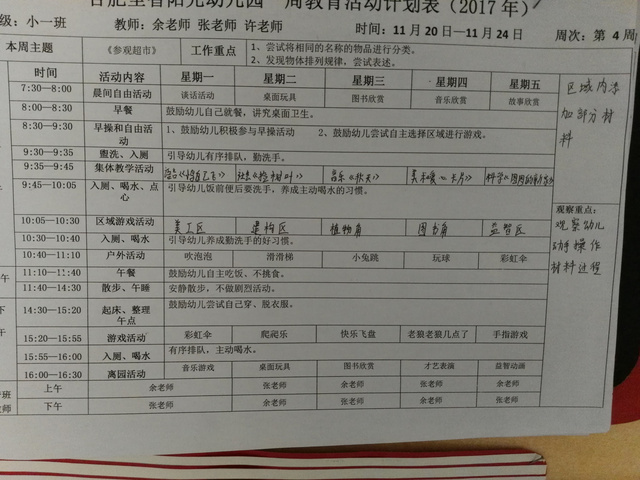 阳光幼儿园一周教育活动计划表（2017 年）
级：小一班 教师：余老师 张老师 许老师 时间：11 月 20 日—11 月 24 日 周次：第 4 周
本周主题 《参观超市》 工作重点 1、尝试将相同的名称的物品进行分类。
2、发现物体排列规律，尝试表述。
时间 活动内容 星期一 星期二 星期三 星期四 星期五
7:30—8:00 晨间自由活动 谈话活动 桌面玩具 图书欣赏 音乐欣赏 故事欣赏
8:00—8:30 早餐 鼓励幼儿自己就餐，讲究桌面卫生。
8:30—9:30 早操和自由活动 1、鼓励幼儿积极参与早操活动 2、鼓励幼儿尝试自主选择区域进行游戏。
9:30—9:35 盥洗、入厕 引导幼儿有序排队，勤洗手。
9:35—9:45 集体教学活动 音乐《秋天》
9:45—10:05 入厕、喝水、点心 引导幼儿饭前便后要洗手，养成主动喝水的习惯。
10:05—10:30 区域游戏活动 美工区 建构区 植物角 图书角 益智区
10:30—10:40 入厕、喝水 引导幼儿养成勤洗手的好习惯。
10:40—11:10 户外活动 吹泡泡 滑滑梯 小兔跳 玩球 彩虹伞
11:10—11:40 午餐 鼓励幼儿自主吃饭、不挑食。
11:40—14:30 散步、午睡 安静散步，不做剧烈活动。
14:30—15:20 起床、整理 午点 鼓励幼儿尝试自己穿、脱衣服。
15:20—15:55 游戏活动 彩虹伞 爬爬乐 快乐飞盘 老狼老狼几点了 手指游戏
15:55—16:00 入厕、喝水 有序排队，主动喝水。
16:00—16:30 离园活动 音乐游戏 桌面玩具 图书欣赏 才艺表演 益智动画
上午 余老师 张老师 余老师 张老师 余老师
下午 张老师 余老师 张老师 余老师 张老师
区域内添
加部分材
料
观察重点：
观察幼儿
动手操作
材料过程